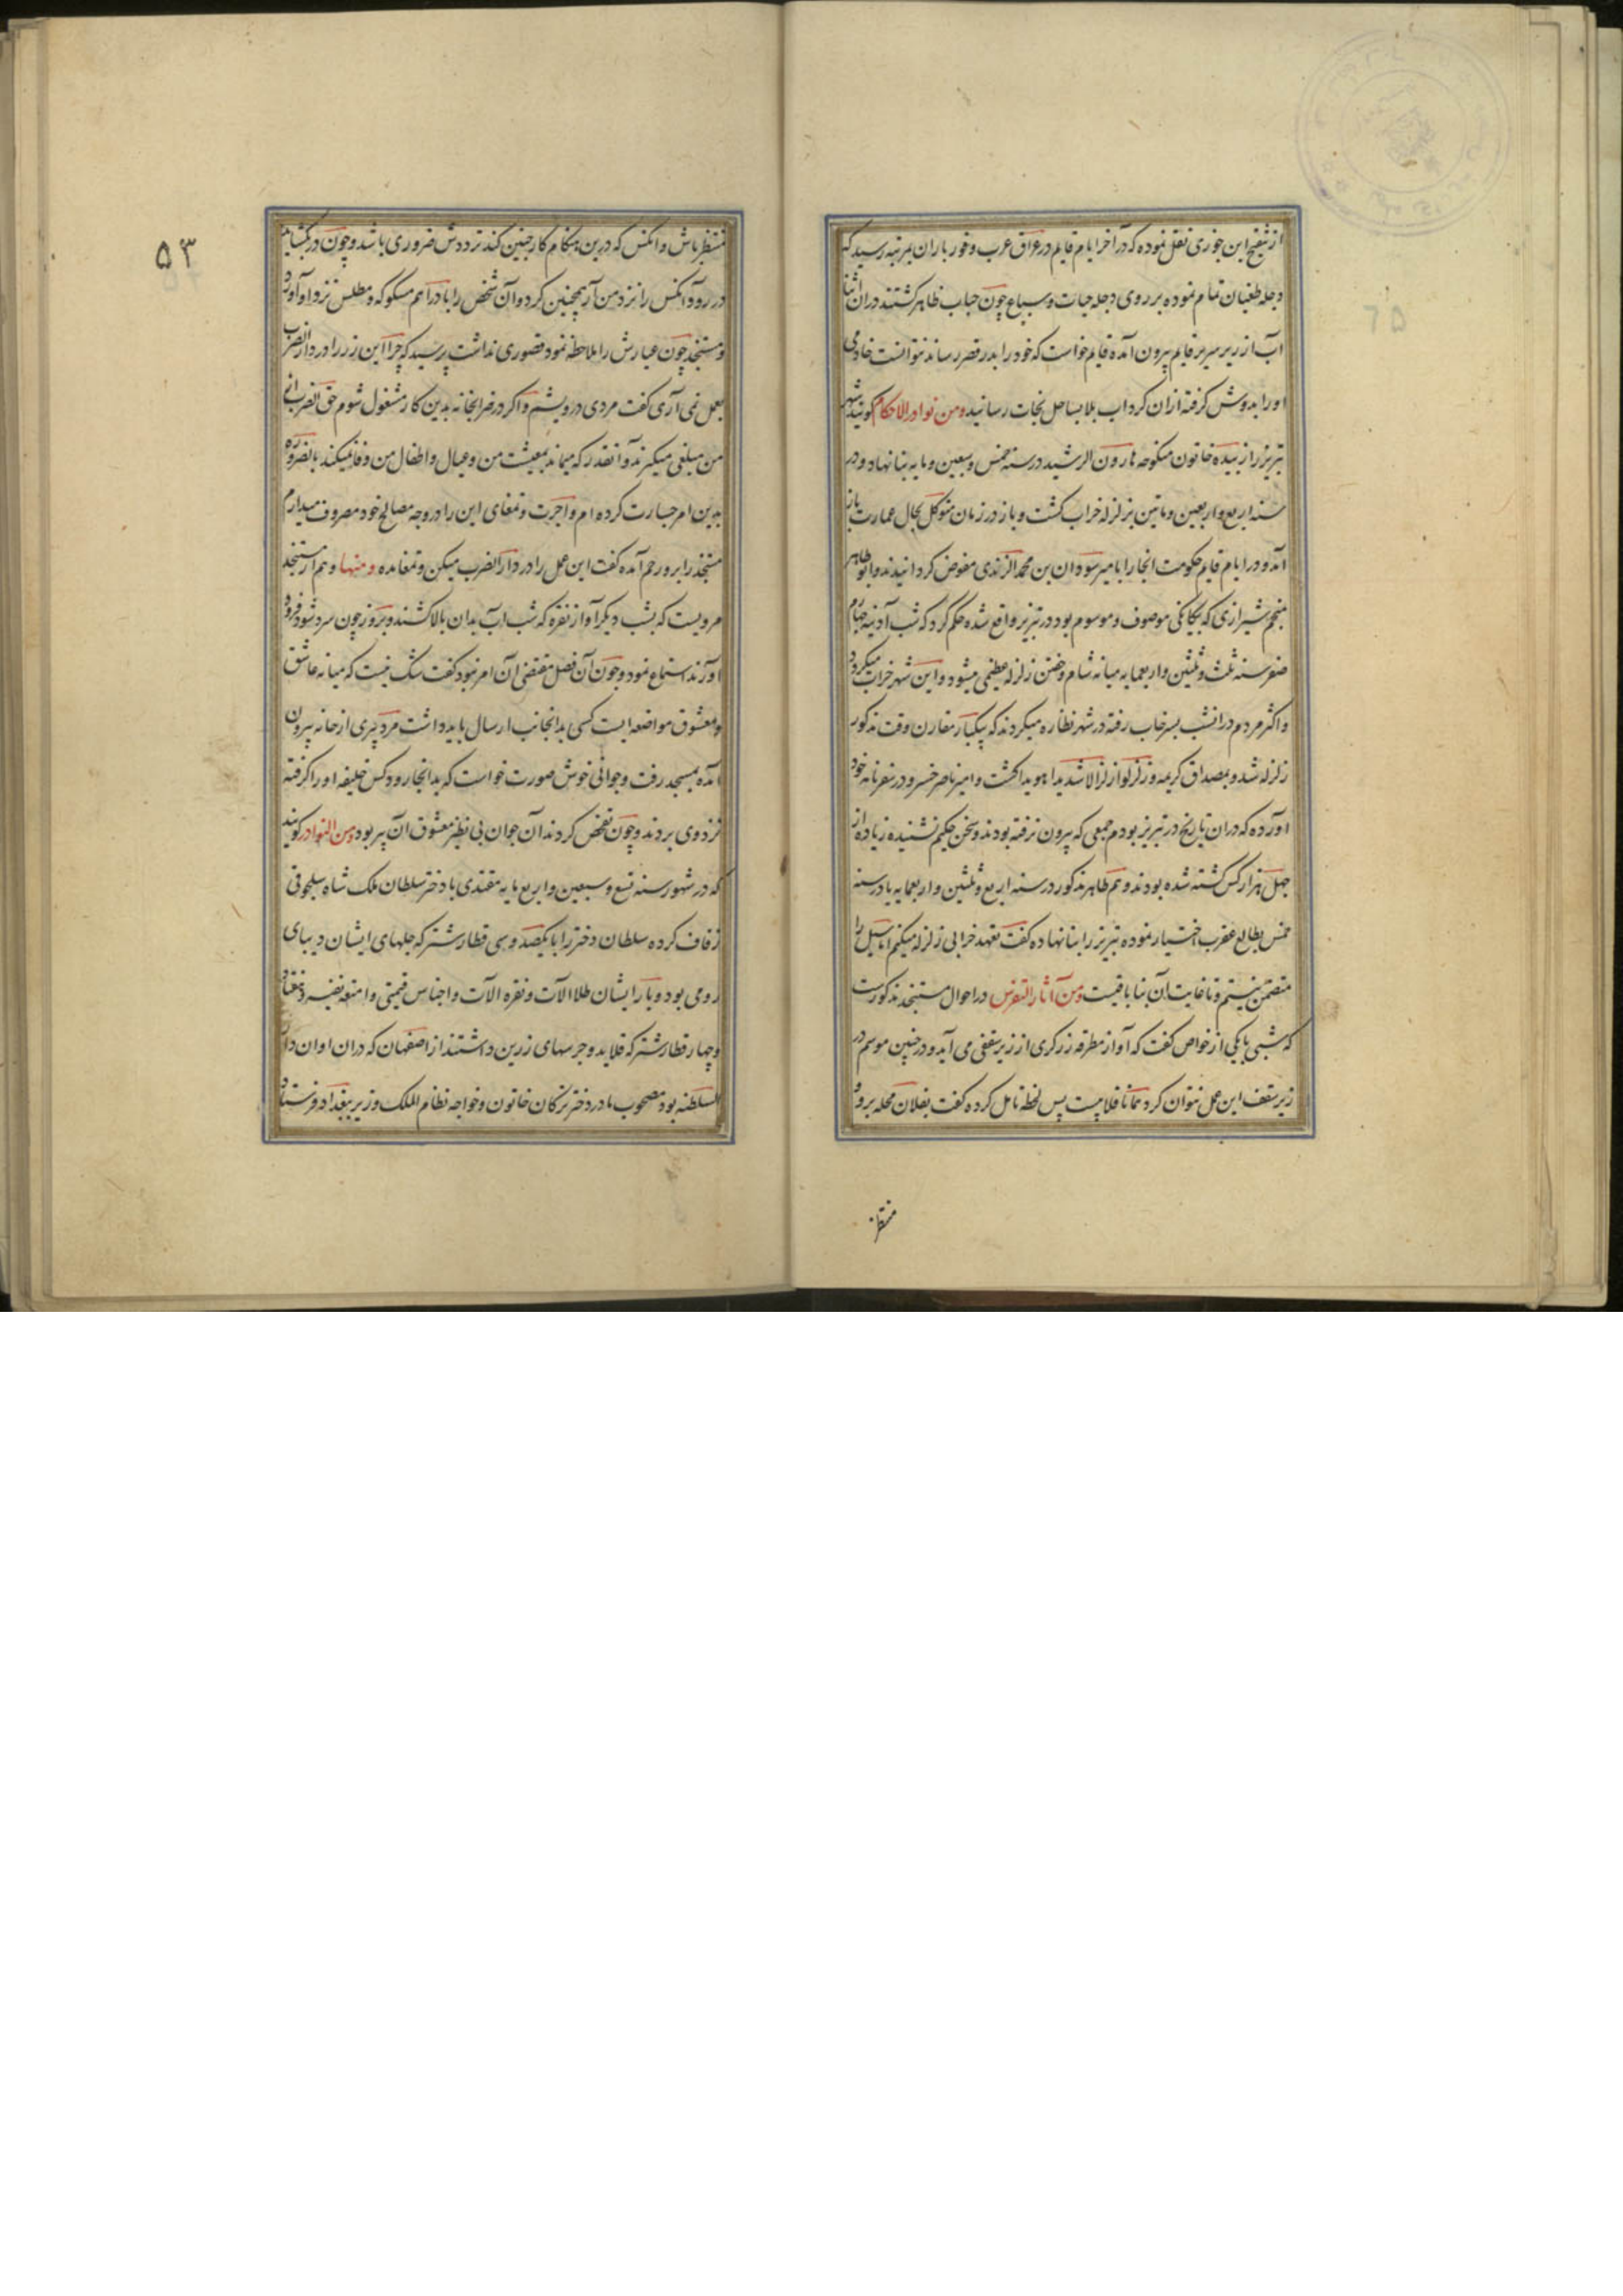 از شیخ ابن جوزی نقل نموده که در آخر ایام قایم در عراق عرب وفور باران بمرتبه رسید که
دجله طغیان تمام نموده بر روی دجله حیات و سباع چون حباب ظاهر گشتند در آن اثنا
آب از زیر سریر قایم بیرون آمده قایم خواست که خود را بدر قصر رساند نتوانست خادمی
او را بدوش گرفته از ان گرداب بلا بساحل نجات رسانید ومن نوادر الاحکام گویند شهر
تبریز را زبیده خاتون منکوحه هارون الرشید در سنه خمس و سبعین و مایه بنا نهاد و در
سنه اربع و اربعین و ماتین بزلزله خراب گشت و باز در زمان متوکل بحال عمارت باز
آمد و در ایام قایم حکومت انجا را بامیر سودان بن محمد الرندی مفوض گردانیدند و ابو طاهر
منجم شیرازی که بیگانگی موصوف و موسوم بود در تبریز واقع شده حکم کرد که شب آدینه
صفر سنه ثلث و ثلثین و اربعمایه میانه شام و خفتن زلزله عظیمی میشود و این شهر خراب میگردد
و اکثر مردم در انشب بسرخاب رفته در شهر نظاره میکردند که بیکبار مقارن وقت مذکور
زلزله شد و بمصداق کریمه وزلزلوا زلزالا شدیدا هویدا گشت و امیر ناصر خسرو در سفرنامه خود
آورده که در ان تاریخ در تبریز بودم جمعی که بیرون نرفته بودند و سخن حکیم نشنیده زیاده از
چهل هزار کس کشته شده بودند و هم طاهر مذکور در سنه اربع و ثلثین و اربعمایه یا در سنه
خمس بطالع عقرب اختیار نموده تبریز را بنا نهاده گفت تعهد خرابی زلزله میکنم اما سیل را
متضمن نیستم و تا غایت آن بنا باقیست ومن آثار التفرس در احوال مستنجد مذکورست
که شبی با یکی از خواص گفت که آواز مطرقه زرگری از زیر سقفی می آید و در چنین موسم در
زیر سقف این عمل نتوان کرد همانا قلابیست پس لحظه تامل کرده گفت بفلان محله برو و
منتظر
۵۳
منتظر باش و انکس که درین هنگام کار چنین کند ترددش ضروری باشد و چون در بگشاید
در رو و آنکس را نزد من آر همچنین کرد و آن شخص را با دراهم مسکوکه و مطلس نزد او آورد
و مستنجد چون عیارش را ملاحظه نمود قصوری نداشت پرسید که چرا این زر را در دار الضرب
بعمل نمی آری گفت مردی درویشم و اگر در ضرابخانه بدین کار مشغول شوم حق الضرابی
من مبلغی میگیرند و آنقدر که میماند بمعیشت من و عیال و اطفال من وفا نمیکند بالضروره
بدین امر جسارت کرده ام و اجرت و تمغای این را در وجه مصالح خود مصروف میدارم
مستنجد را برو رحم آمده گفت این عمل را در دار الضرب میکن و تمغا مده ومنها و هم از مستنجد
مرویست که بشب دیگر آواز نقره که شب اب بدان بالا کشند و بروز چون سرد شود فرود
آورند استماع نمود و چون آن فصل مقتضی آن امر نبود گفت شک نیست که میانه عاشق
و معشوق مواضعه ایست کسی بدانجانب ارسال باید داشت مرد پیری از خانه بیرون
آمده بمسجد رفت و جوانی خوش صورت خواست که بدانجا رود کس خلیفه او را گرفته
نزد وی بردند و چون تفحص کردند آن جوان بی نظیر معشوق آن پیر بود ومن النوادر گویند
که در شهور سنه تسع و سبعین و اربع مایه مقتدی با دختر سلطان ملک شاه سلجوقی
زفاف کرده سلطان دختر را با یکصد و سی قطار شتر که جلهای ایشان دیبای
رومی بود و بار ایشان طلا آلات و نقره الات و اجناس قیمتی و امتعه نفیسه و هفتاد
و چهار قطار شتر که قلاید و جرسهای زرین داشتند از اصفهان که در ان اوان دار
السلطنه بود مصحوب مادر دختر ترکان خاتون و خواجه نظام الملک وزیر ببغداد فرستاد